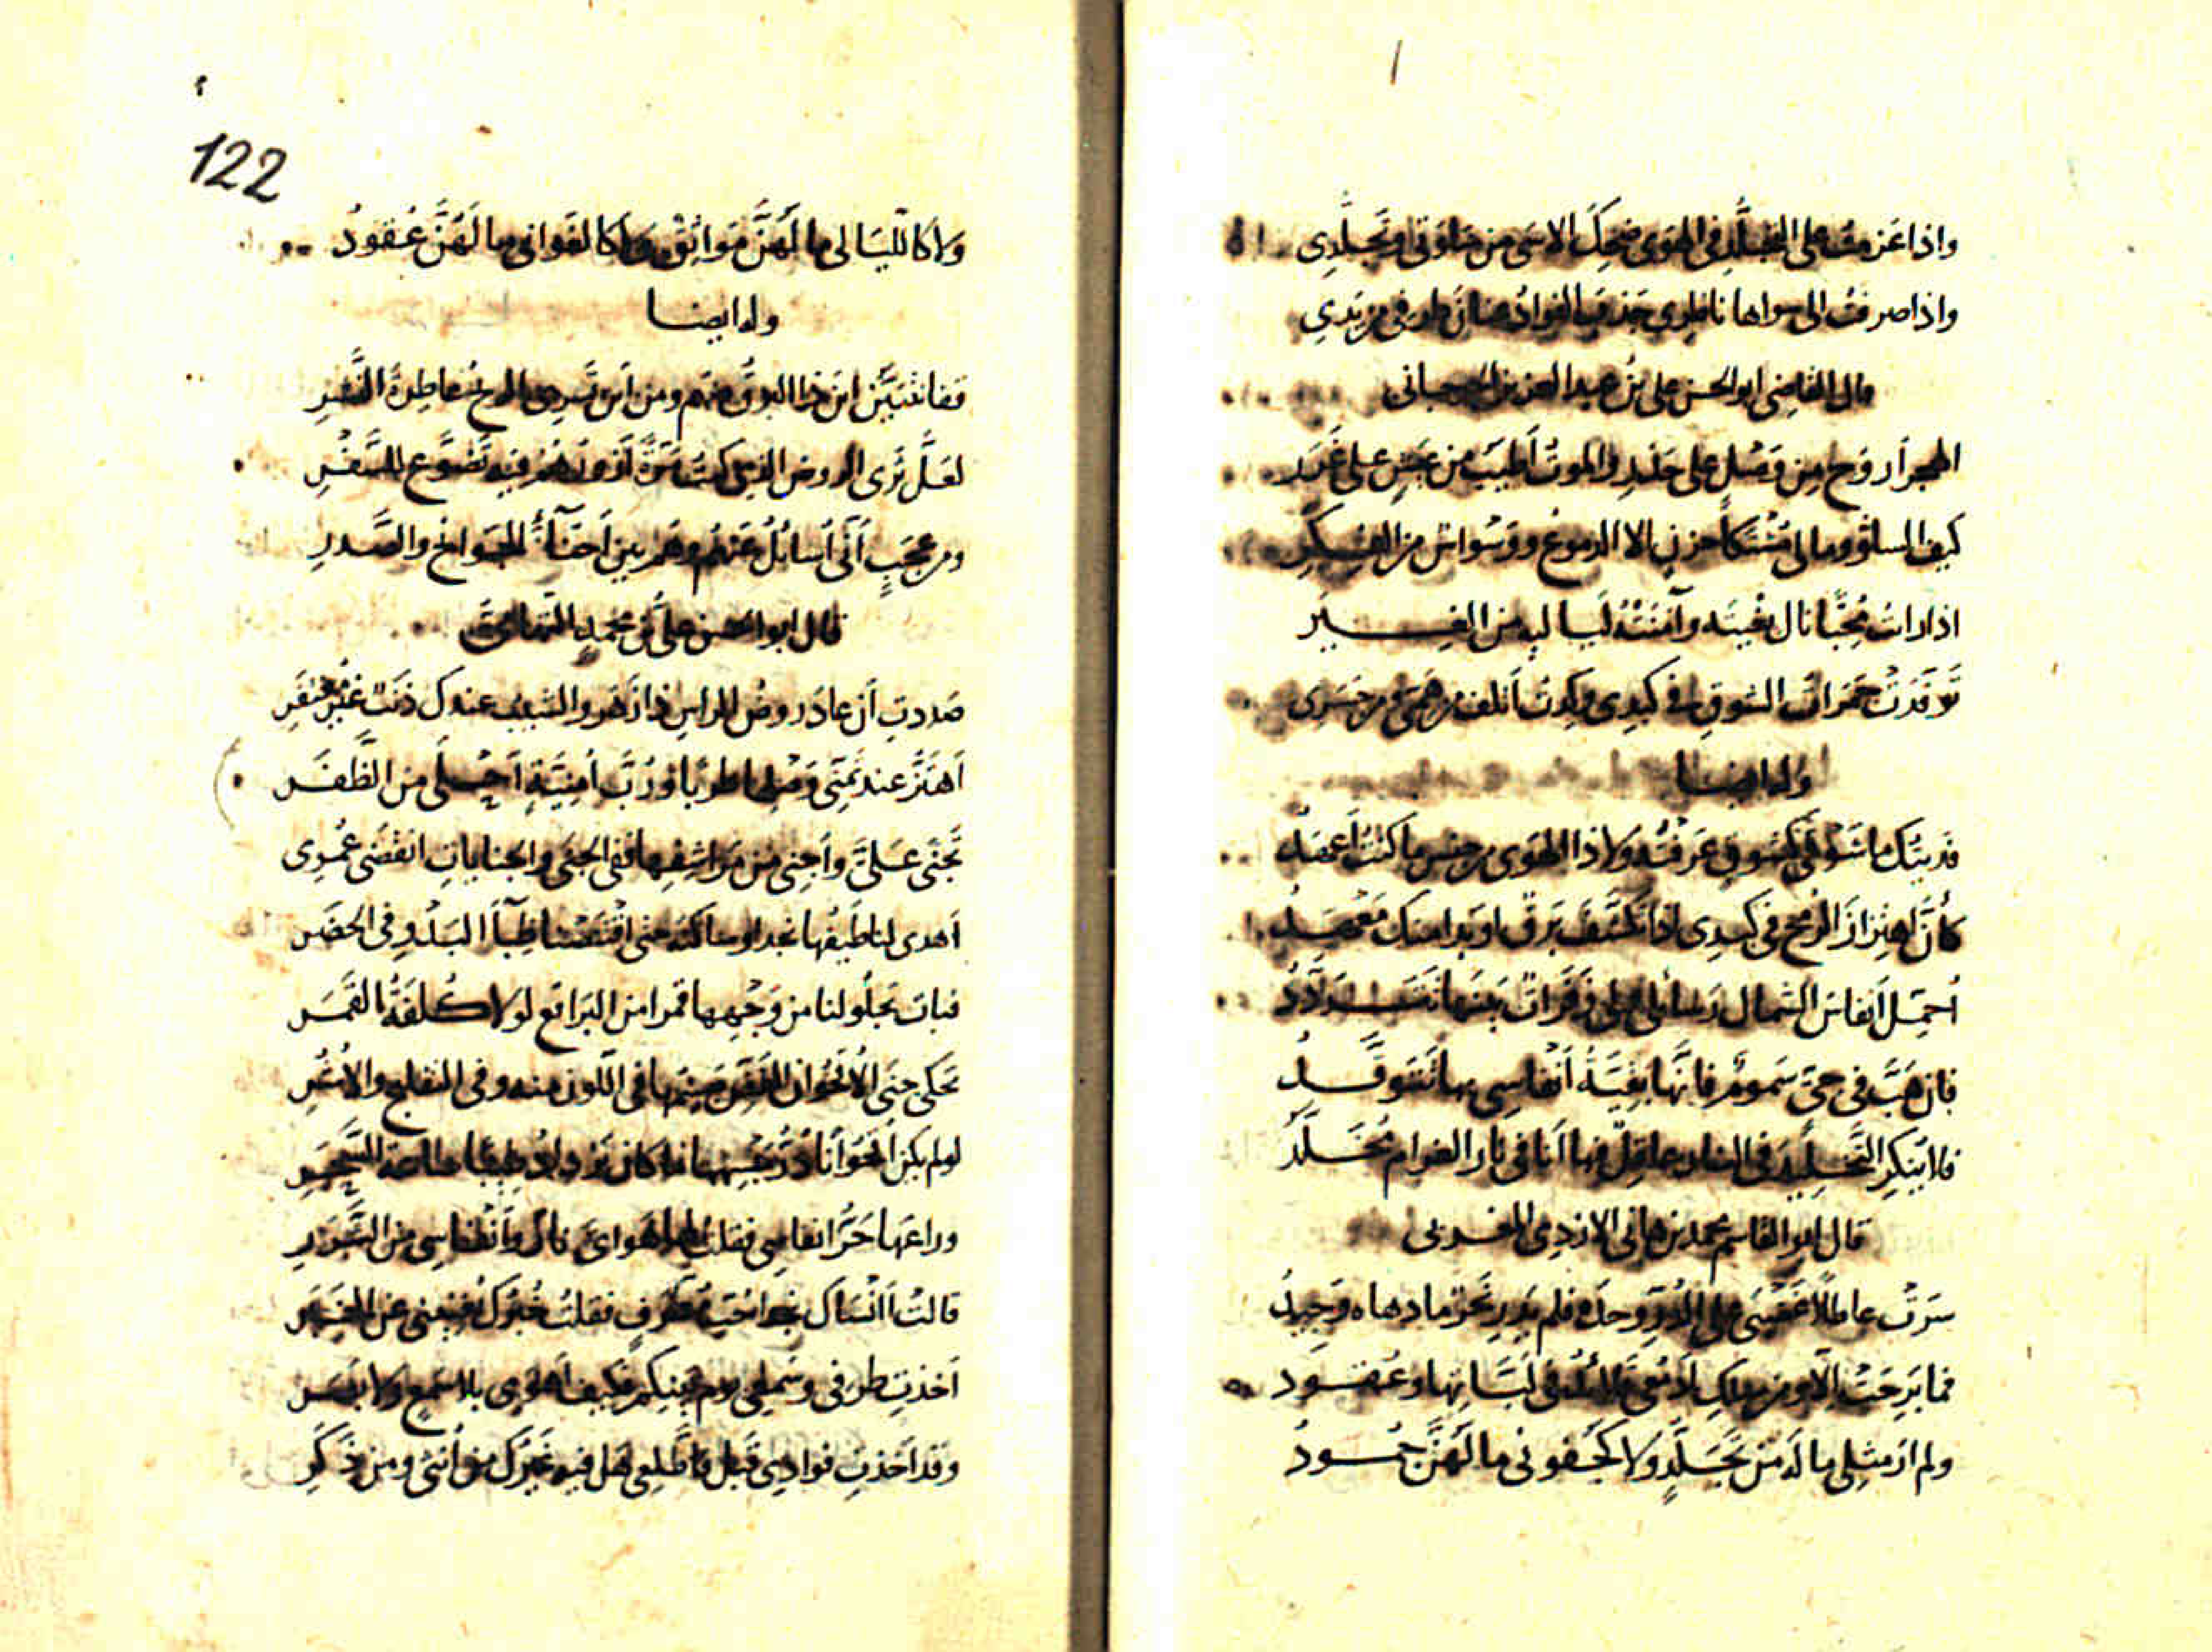 واذا عزمت على التجلد في الهوى ضحك الاسى من سلوتي وتجلدي
واذا صرفت الى سواها ناظري جذب الفواد عنان طرفي من يدي
قال القاضي ابو الحسن علي بن عبد العزيز الجرجاني
الهجر أروح من وصل على حذر والموت أطيب من عيش على غرر
كيف السلو وما لي مشتكا حزن الا الدموع ووسواس من الفكر
اذا رات محبا نال بغيته وآمنته لياليه من الغير
توقدت جمرات الشوق في كبدي وكدت أتلف من همي ومن حسري
وله ايضا
فديتك ما شوقي كشوق عرفته ولا ذا الهوى من جنس ما كنت أعهد
كأن اهتزاز الرمح في كبدي اذا تكشف برق او بدا منك معهد
أحمل أنفاس الشمال رسايلي على زفرات بينها تتردد
فان هب في حي سموم فانها بقية أنفاسي بها تتوقد
فلا ينكر التخليد في النار عاقل فها أنا في نار الغرام مخلد
قال ابو القاسم محمد بن هاني الازدي المغربي
سرت عاطلا غضبى على الدر وحده فلم يدر نحر ما دهاه وجيد
فما برحت الا ومن سلك أدمعي قلائد في لباتها وعقود
ولم أر مثلي ما له من تجلد ولا كجفوني ما لهن جمود
ولا كالليالي ما لهن مواثق ولا كالغواني ما لهن عقود
وله ايضا
قفا نتبين اين ذا البرق منهم ومن أين تسري الريح عاطرة النشر
لعل ثرى الروض الذي كنت مرة أزورهم فيه تضوع للسفر
ومن عجب أني أسائل عنهم وهم بين أحناء الجوانح والصدر
قال ابو الحسن علي بن محمد التهامي
صددت أن عاد روض الراس ذا زهر والشيب عندك ذنب غير مغتفر
أهتز عند تمني وصلها طربا ورب أمنية أحلى من الظفر
تجني علي وأجني من مراشفها ففي الجنى والجنايات انقضى عمري
اهدى لنا طيفها نجدا وساكنه حتى اقتنصنا ظبآ البدو في الحضر
فبات تجلو لنا من وجهها قمرا من البراقع لولا كلفة القمر
تحكي جنى الاقحوان الغض مبسمها في اللون منه وفي التفلج والاشر
لو لم يكن أقحوانا ثغر مبسمها ما كان يزداد طيبا ساعة السحر
وراعها حر انفاسي فقلت لها هواي نار وأنفاسي من الشرر
قالت أأنساك فقلت خبرك يغنيني عن الخبر
أخذت طرفي وسمعي يوم بينكم فكيف أهوى بلا سمع ولا بصر
وقد أخذت فوادي قبل فاطلعي هل فيه غيرك من أنثى ومن ذكر
122